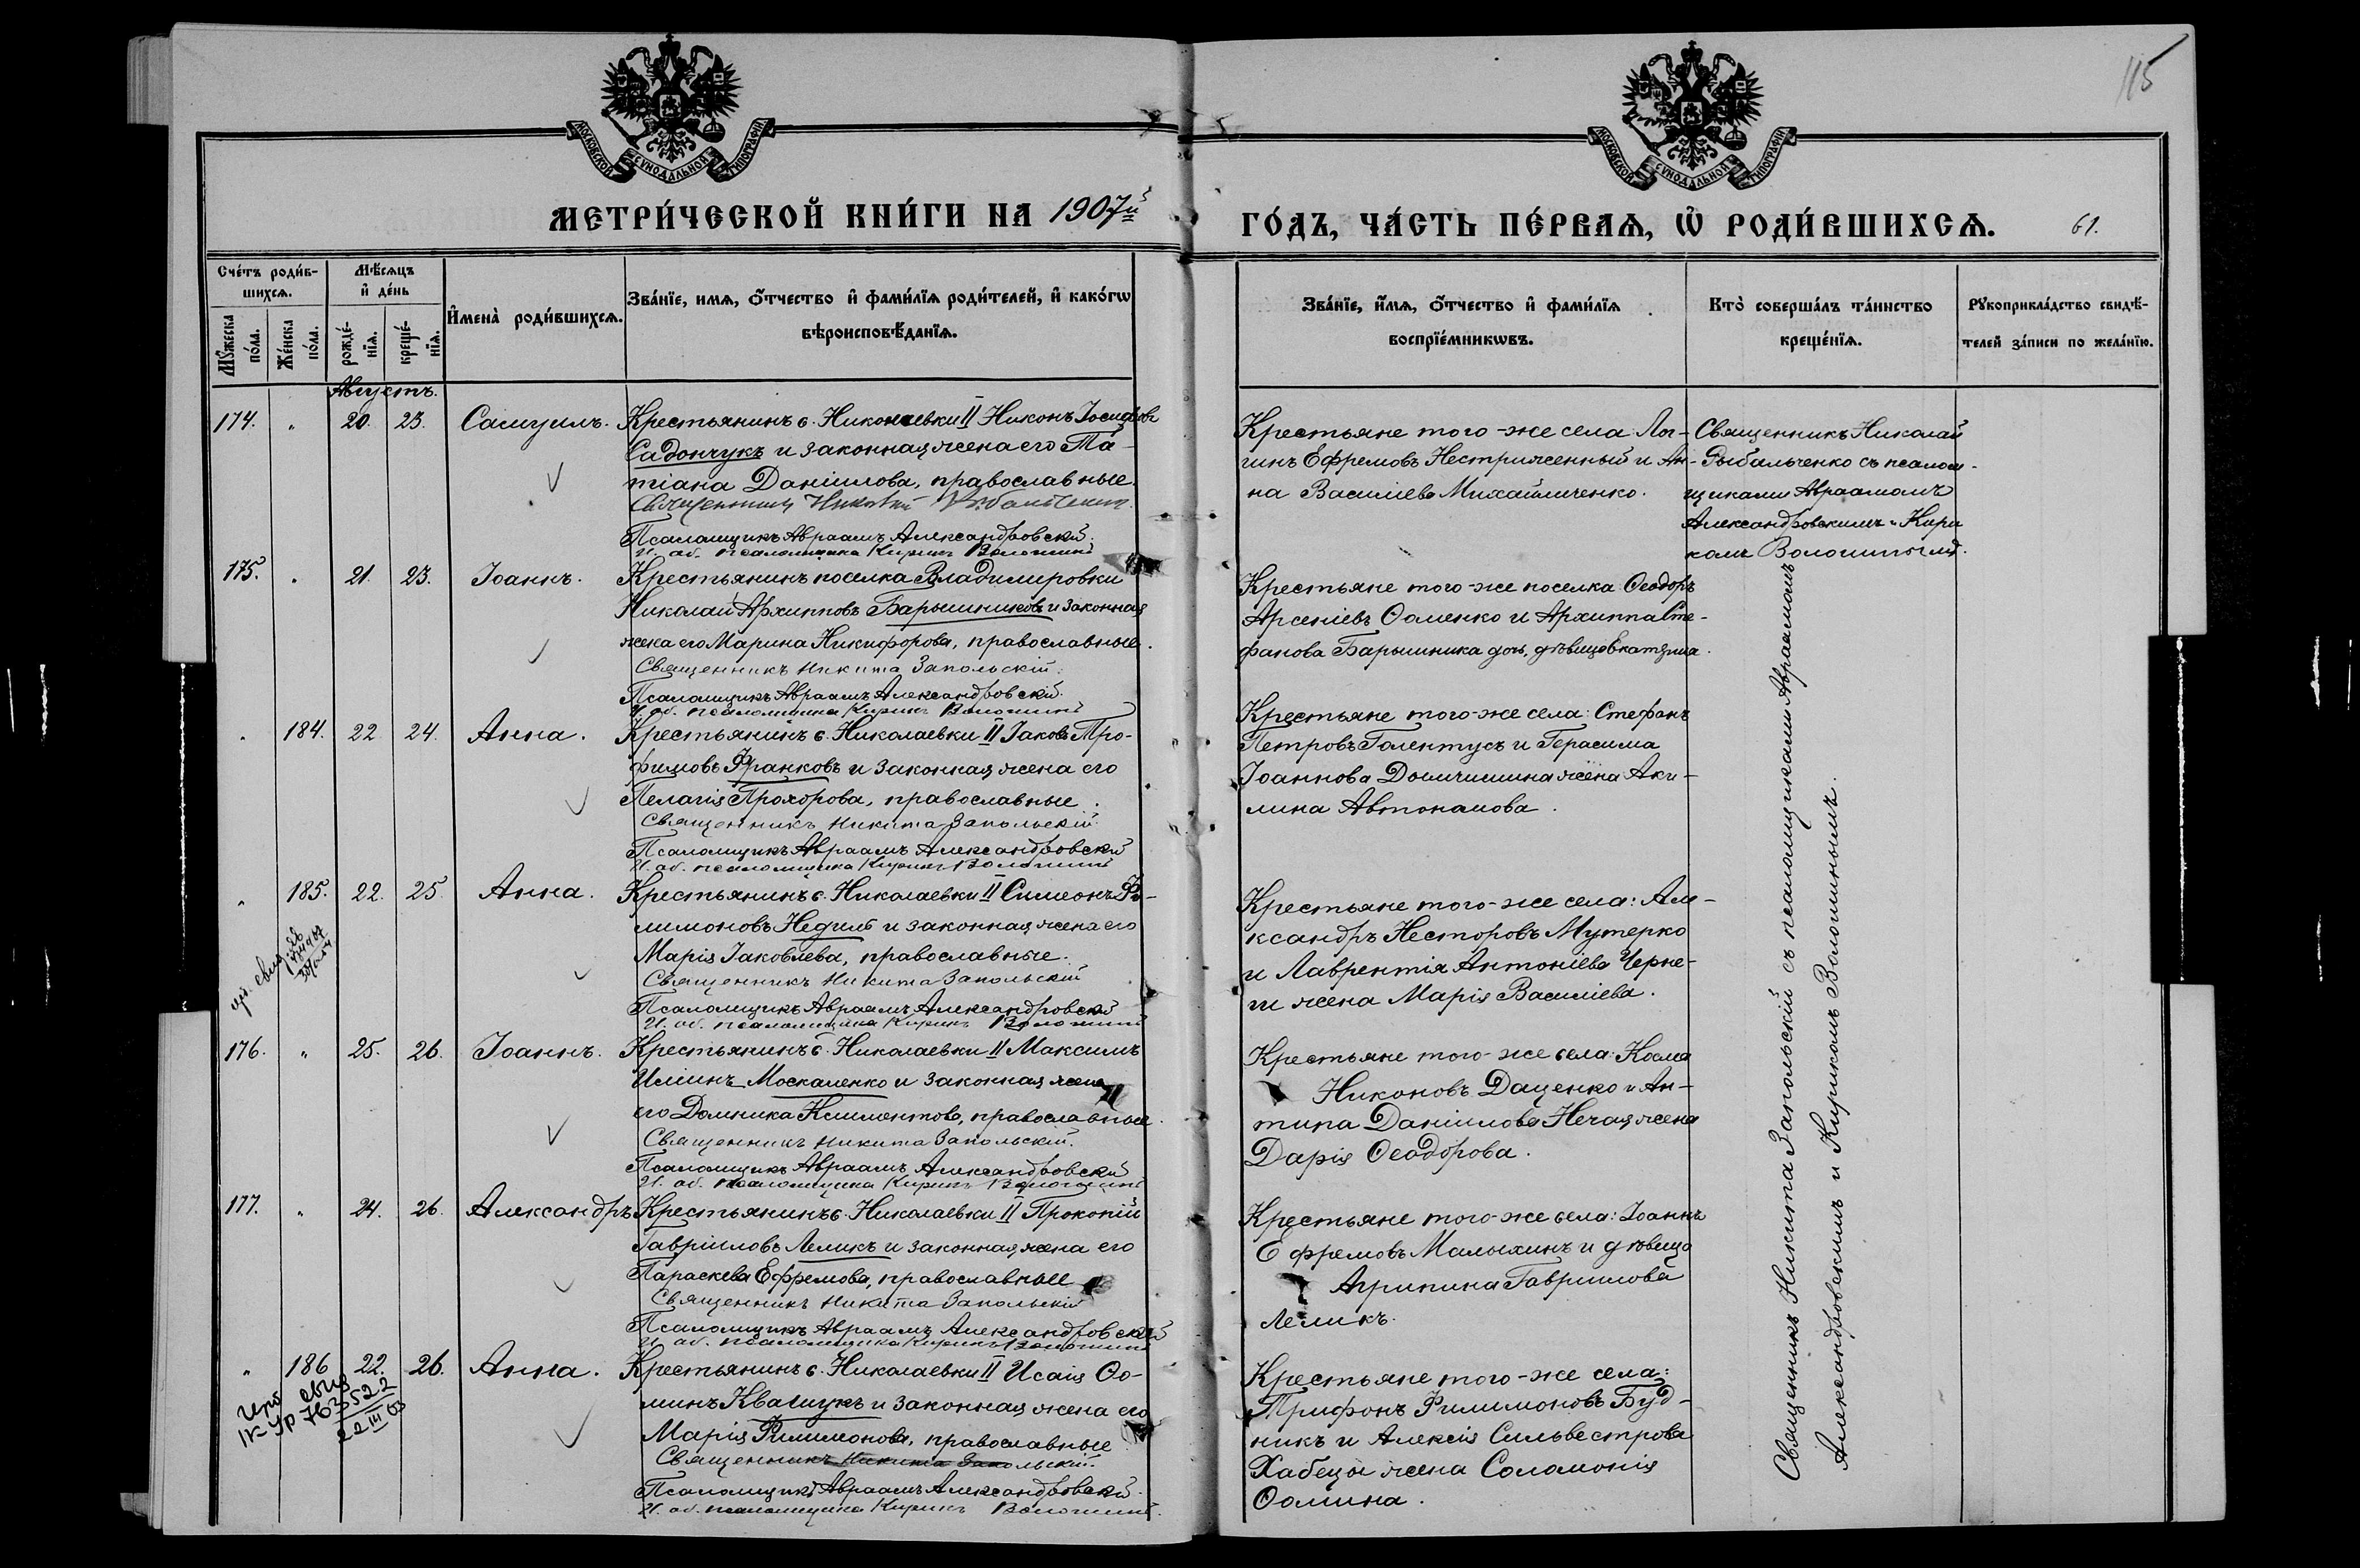 115
МОСКОВСКОЙ СУНОДАЛЬНОЙ ТИПОГРАФІИ
МОСКОВСКОЙ СУНОДАЛЬНОЙ ТИПОГРАФІИ
МЕТРИ́ЧЕСКОЙ КНИ́ГИ НА 1907й
ГО́ДЪ, ЧА́СТЬ ПЕ́РВАѦ, Ѡ҆ РОДИ́ВШИХСѦ. 61.
Сче́тъ роди́в-
шихсѧ.
Мꙋ́жеска по́ла.
Же́нска по́ла.
Мѣ́сѧцъ
и҆ де́нь
рожде́-
нїѧ.
креще́-
нїѧ.
И҆мена̀ роди́вшихсѧ.
Зва́нїе, имѧ, ѻ҆́тчество и҆ фами́лїѧ роди́телей, и҆ како́гѡ
вѣроисповѣ́данїѧ.
Зва́нїе, и҆́мѧ, ѻ҆́тчество и҆ фами́лїѧ
воспрїе́мникѡвъ.
Кто̀ соверша́лъ та́инство
креще́нїѧ.
Рꙋкоприкла́дство свидѣ́-
телей за́писи по жела́нїю.
Августъ.
174. " 20. 23. Самуилъ. Крестьянинъ с. Николаевки II Никонъ Іосифовъ
Садончукъ и законная жена его Та-
тіана Даніилова, православные.
Священникъ Николай Рыбальченко.
Псаломщикъ Авраамъ Александровскій.
И. об. псаломщика Кирикъ Волошинъ
Крестьяне того-же села: Лог-
гинъ Ефремовъ Нестриженный и Ан-
на Василіева Михайличенко.
Священникъ Николай
Рыбальченко съ псалом-
щиками Авраамомъ
Александровскимъ и Кири
комъ Волошинымъ.
175. " 21. 23. Іоаннъ. Крестьянинъ поселка Владимировки
Николай Архипповъ Барышниковъ и законная
жена его Марина Никифорова, православные.
Священникъ Никита Запольскій.
Псаломщикъ Авраамъ Александровскій.
И. об. псаломщика Кирикъ Волошинъ
Крестьяне того-же поселка: Ѳеодоръ
Арсеніевъ Ѳоменко и Архиппа Сте-
фанова Барышника дочь, дѣвица Екатерина.
" 184. 22. 24. Анна. Крестьянинъ с. Николаевки II Іаковъ Тро-
фимовъ Франковъ и законная жена его
Пелагія Прохорова, православные.
Священникъ Никита Запольскій.
Псаломщикъ Авраамъ Александровскій
И. об. псаломщика Кирикъ Волошинъ
Крестьяне того-же села: Стефанъ
Петровъ Голентусъ и Герасима
Іоаннова жена Аки-
лина Автономова.
" 185. 22. 25. Анна. Крестьянинъ с. Николаевки II Симеонъ Фи-
лимоновъ и законная жена его
Марія Іаковлева, православные.
Священникъ Никита Запольскій
Псаломщикъ Авраамъ Александровскій
И. об. псаломщика Кирикъ Волошинъ
Крестьяне того-же села: Але-
ксандръ Несторовъ Мутерко
и Лаврентія Антоніева Черне-
ги жена Марія Василіева.
176. " 25. 26. Іоаннъ. Крестьянинъ с. Николаевки II Максимъ
Иліинъ Москаленко и законная жена
его Домника Климентова, православные.
Священникъ Никита Запольскій.
Псаломщикъ Авраамъ Александровскій
И. об. псаломщика Кирикъ Волошинъ
Крестьяне того-же села: Косма
Никоновъ Даценко и Ан-
типа Даніилова Нечая жена
Дарія Ѳеодорова.
177. " 24. 26. Александръ Крестьянинъ с. Николаевки II Прокопій
Гавріиловъ Лемикъ и законная жена его
Параскева Ефремова, православные
Священникъ Никита Запольскій
Псаломщикъ Авраамъ Александровскій
И. об. псаломщика Кирикъ Волошинъ
Крестьяне того-же села: Іоаннъ
Ефремовъ Малыхинъ и дѣвица
Агрипина Гавриилова
Лемикъ.
" 186 22. 26. Анна. Крестьянинъ с. Николаевки II Исаія Ѳо-
минъ Квашукъ и законная жена его
Марія Филимонова, православные
Священникъ Никита Запольскій.
Псаломщикъ Авраамъ Александровскій.
И. об. псаломщика Кирикъ Волошинъ.
Крестьяне того-же села:
Трифонъ Филимоновъ Буд-
никъ и Алексія Сильвестрова
Хабецы жена Соломонія
Ѳомина.
Священникъ Никита Запольскій съ псаломщиками Авраамомъ
Александровскимъ и Кирикомъ Волошинымъ.